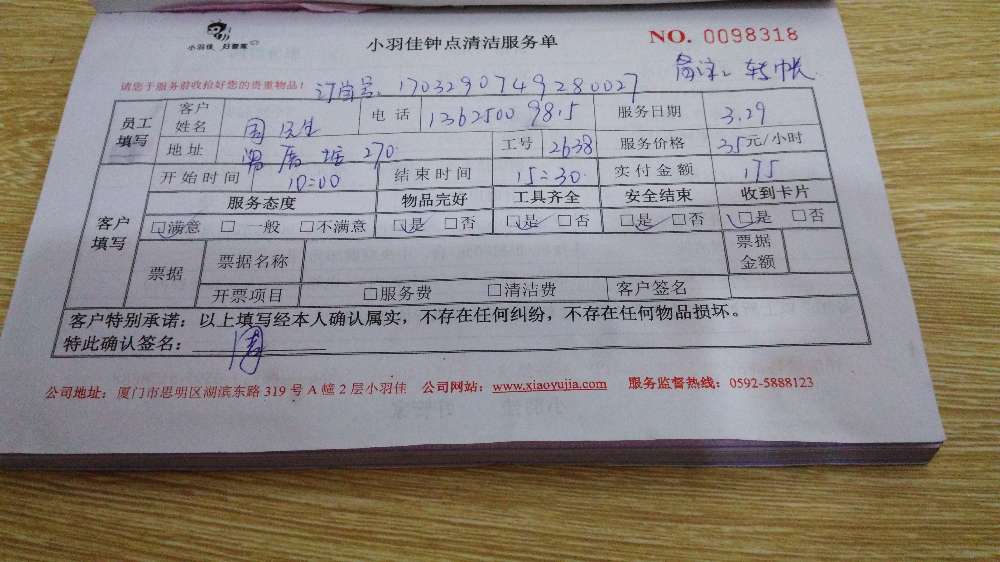 小羽佳 好管家
小羽佳钟点清洁服务单
NO. 0098318
请您于服务前收拾好您的贵重物品!
订单号: 1703290749280027
转帐
员工填写
客户姓名 周先生 电话 13625009815 服务日期 3.29
地址 270 工号 2638 服务价格 35元/小时
开始时间 10:00 结束时间 15:30 实付金额 175
客户填写
服务态度 物品完好 工具齐全 安全结束 收到卡片
☑满意 □一般 □不满意 ☑是 □否 ☑是 □否 ☑是 □否 ☑是 □否
票据 票据名称 票据金额
开票项目 □服务费 □清洁费 客户签名
客户特别承诺:以上填写经本人确认属实,不存在任何纠纷,不存在任何物品损坏。
特此确认签名: 周
公司地址:厦门市思明区湖滨东路 319 号 A 幢 2 层小羽佳 公司网站:www.xiaoyujia.com 服务监督热线:0592-5888123